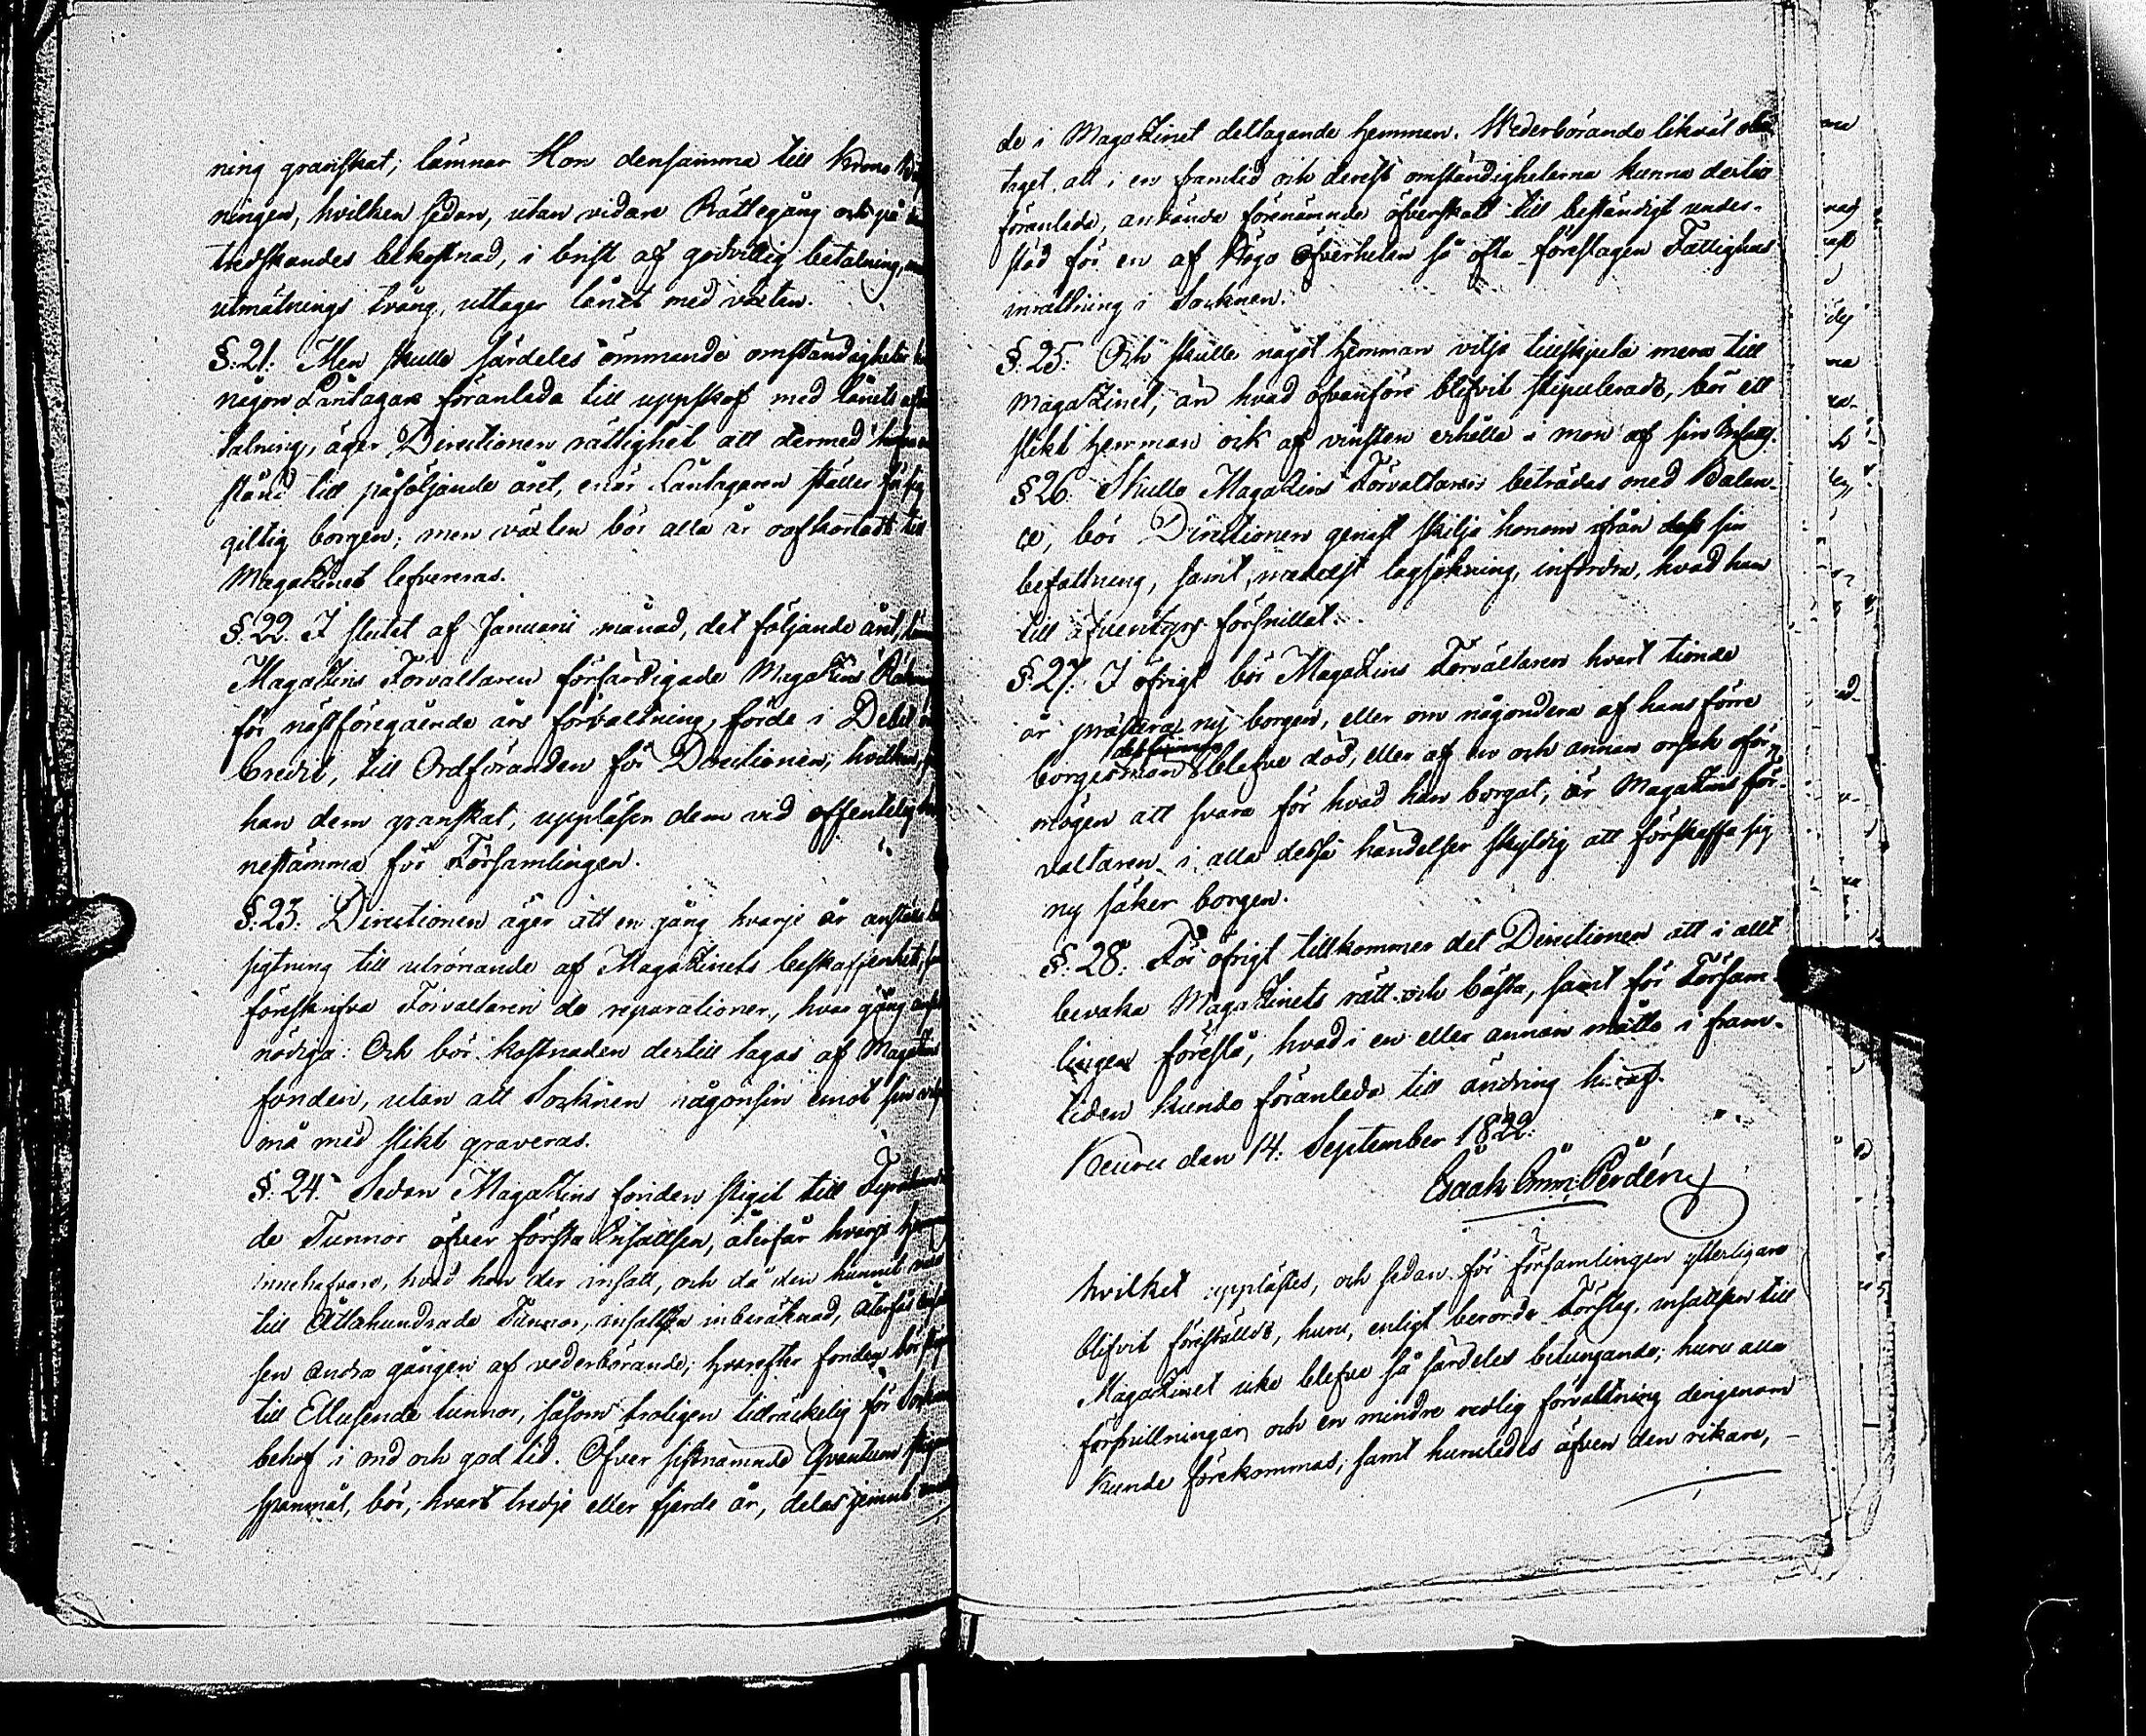 ning granskat; lämnar Hon densamma till Krono
ningen, hvilken sedan, utan vidare Rättegång och på
tredskandes bekostnad, i brist af godvillig betalning,
utmätnings tvång, uttager lånet med växten.
§. 21. Men skulle särdeles ömmande omständigheter
någon Låntagare föranleda till uppskof med lånets
talning, äger Directionen rättighet att dermed
stånd till påföljande året, enär Låntagaren ställer för sig
giltig borgen; men växten bör alla år oafkortadt till
Magazinet lefvereras.
§. 22. I slutet af Januarii månad, det följande året,
Magazins Förvaltaren författigade Magazins
för nästföregående års förvaltning, förde i Debet
Credit, till Ordföranden för Directionen, hvilken
han dem granskat, uppläsen dem vid offentelig
nestämma för Församlingen.
§. 23. Directionen äger att en gång hvarje år anställa
sigtning till utrönande af Magazinets beskaffenhet,
föreskrifva Förvaltaren de reparationer, hvar gång
nödiga: Och bör kostnaden dertill tagas af Magazins
fonden, utan att Socknen någonsin emot sin
må med slikt graveras.
§. 24. Sedan Magazins fonden stigit till
de Tunnor öfver första Insattsen, återfår hvarje
innehafvare, hvad han der insatt, och då den hunnit
till Åttahundrade Tunnor, insattsen inberäknad, återfås
sen andra gången af vederbörande; hvarefter fonden bör
till Ettusende tunnor, såsom troligen tillräckelig för
behof i ond och god tid. Öfver sistnämnde Qvantum
spanmål, bör, hvart tredje eller fjerde år, delas jemnt
de i Magazinet deltagande hemman. Wederbörande likväl
taget, att i en framtid och derest omständigheterna kunna dertill
föranleda, använda förenämnde öfverskott till beständigt under-
stöd för en af Höga Öfverheten så ofta föreslagen Fattighus
inrättning i Socknen.
§. 25. Och skulle något hemman vilja tillskjuta mera till
Magazinet, än hvad ofvanföre blifvit stipuleradt, bör ett
slikt hemman ock af vinsten erhålla i mon af sin Insatts.
§ 26. Skulle Magazins Förvaltaren beträdas med Balan-
ce, bör Directionen genast skilja honom ifrån sin
befattning, samt, medelst lagsökning, infordra, hvad han
till äfventyrs försnillat.
§. 27. I öfrigt bör Magazins Förvaltaren hvart tionde
år præstera ny borgen, eller om någondera af hans förre
borgesmän blefve död, eller af en och annan orsak oför-
mögen att svara för hvad han borgat, är Magazins för-
valtaren i alla dessa händelser skyldig att förskaffa sig
ny säker borgen.
§. 28. För öfrigt tillkommer det Directionen att i allt
bevaka Magazinets rätt och bästa, samt för Försam-
lingen föreslå, hvad i en eller annan måtto i fram-
tiden kunde föranleda till ändring häraf.
Keuru den 14: September 1822.
Esaak Emm: Perdén
hvilket upplästes, och sedan för församlingen ytterligare
blifvit föreställdt, huru, enligt berörde Förslag, insattsen till
Magazinet icke blefve så särdeles betungande; huru alla
försnillningar och en mindre redlig förvaltning derigenom
kunde förekommas; samt huruledes äfven den rikare,